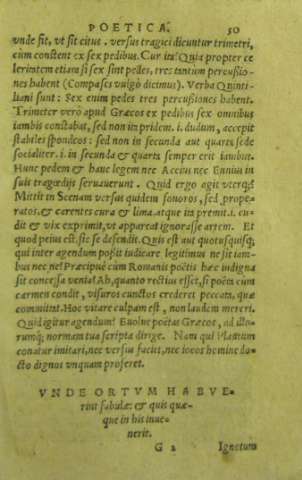 POETICA. 50
vnde fit, vt sit citus. versus tragici dicuntur trimetri,
cùm constent ex sex pedibus. Cur ita? Quia propter ce
leritatem etiam si sex sint pedes, tres tantùm percussio-
nes habent (Compases vulgò dicimus). Verba Quinti-
liani sunt: Sex enim pedes tres percussiones habent.
Trimeter verò apud Græcos ex pedibus sex omnibus
iambis constabat, sed non ita pridem. i. dudum, accepit
stabiles spondeos: sed non in secunda aut quarta sede
socialiter. i. in secunda & quarta semper erit iambus.
Hunc pedem & hanc legem nec Accius nec Ennius in
suis tragedijs seruauerunt. Quid ergo agit vterq;
Mittit in Scenam versus quidem sonoros, sed prope-
ratos, & carentes cura & lima. atque ita premit. i. cu-
dit & vix exprimit, vt appareat ignorasse artem. Et
quod peius est. sic se defendit. Quis est aut quotusquisq;
qui inter agendum possit iudicare legitimus ne sit iam-
bus nec ne? Præcipuè cùm Romanis poëtis hæc indigna
sit concessa venia? Ah, quanto rectius esset, si poëm cùm
carmen condit, visuros cunctos crederet peccata, quæ
committit. Hoc vitare culpam est, non laudem mereri.
Quid igitur agendum? Euolue poëtas Græcos, ad illo-
rumq; normam tua scripta dirige. Nam qui Plautum
conatur imitari, nec versus faciet, nec iocos homine do-
cto dignos vnquam proferet.
VNDE ORTVM HABVE-
rint fabulæ: & quis quæ-
que in his inue-
nerit.
G 2 Ignotum